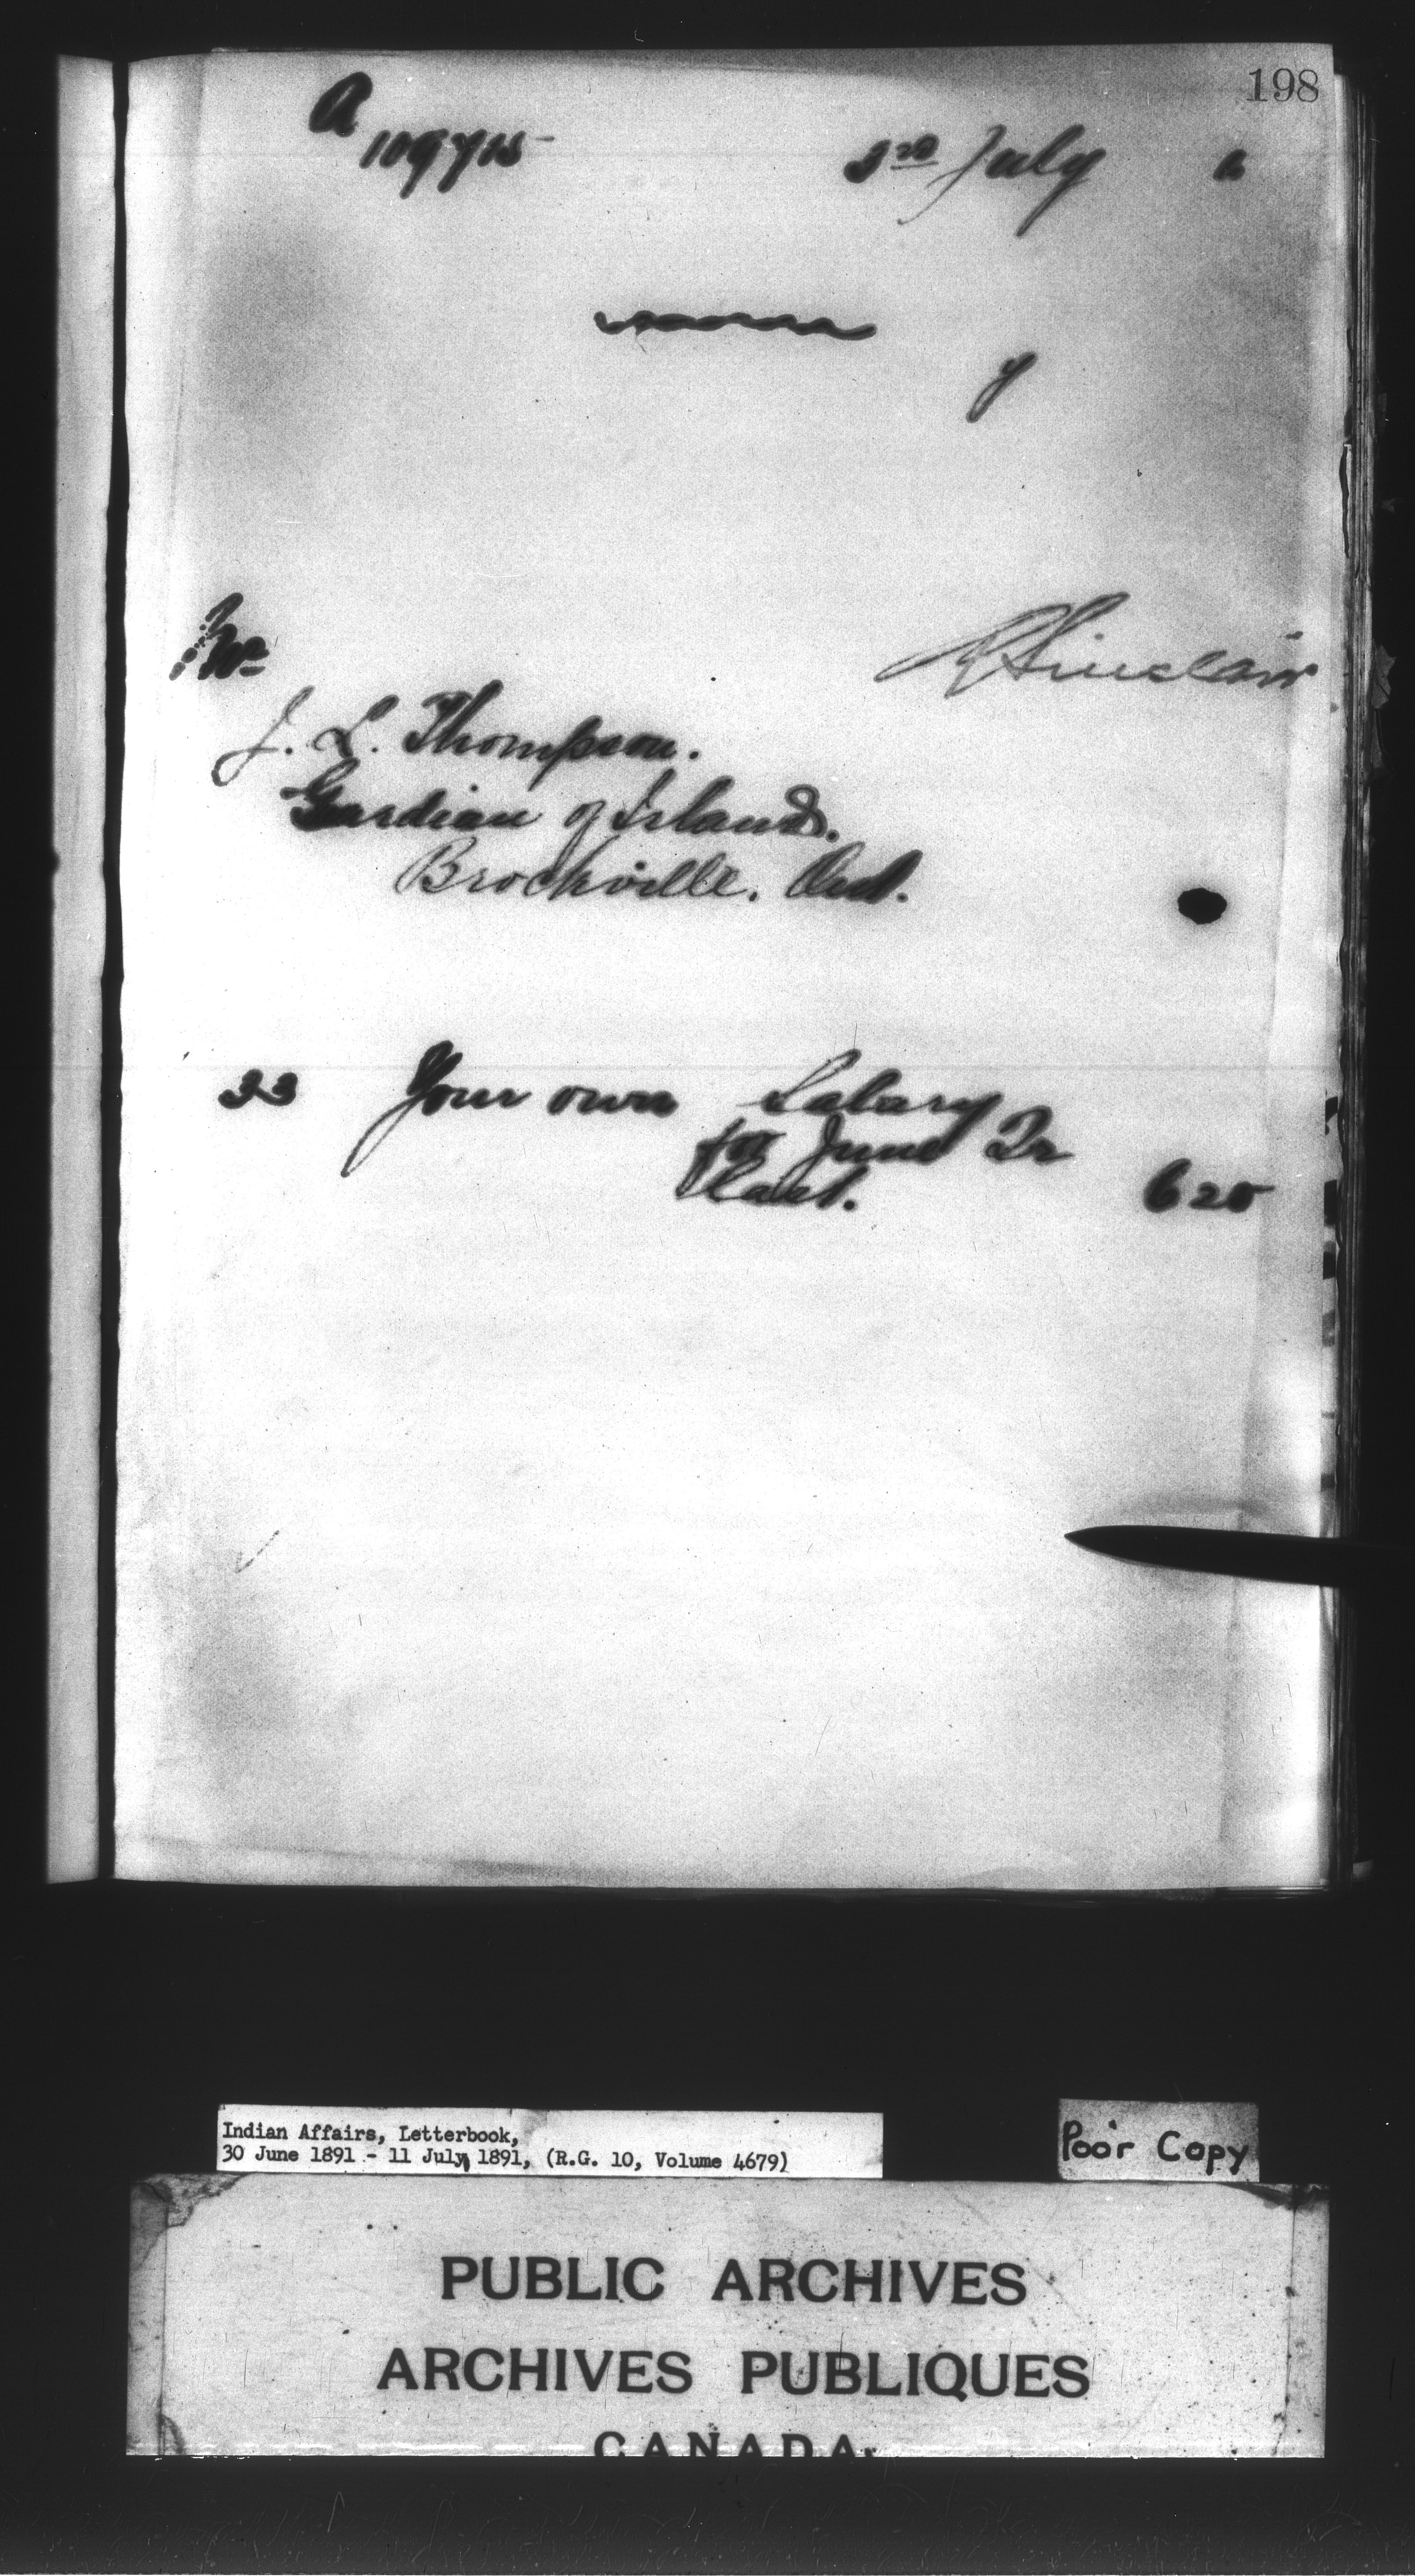 198
A
109715
2nd July
y
R Sinclair
Mr
J. L. Thompson.
Gardian of Islands.
Brockville. Ont.
33 Your own Salary
for June Qr
last.
6 25
Indian Affairs, Letterbook,
30 June 1891 - 11 July 1891, (R.G. 10, Volume 4679)
Poor Copy
PUBLIC ARCHIVES
ARCHIVES PUBLIQUES
CANADA